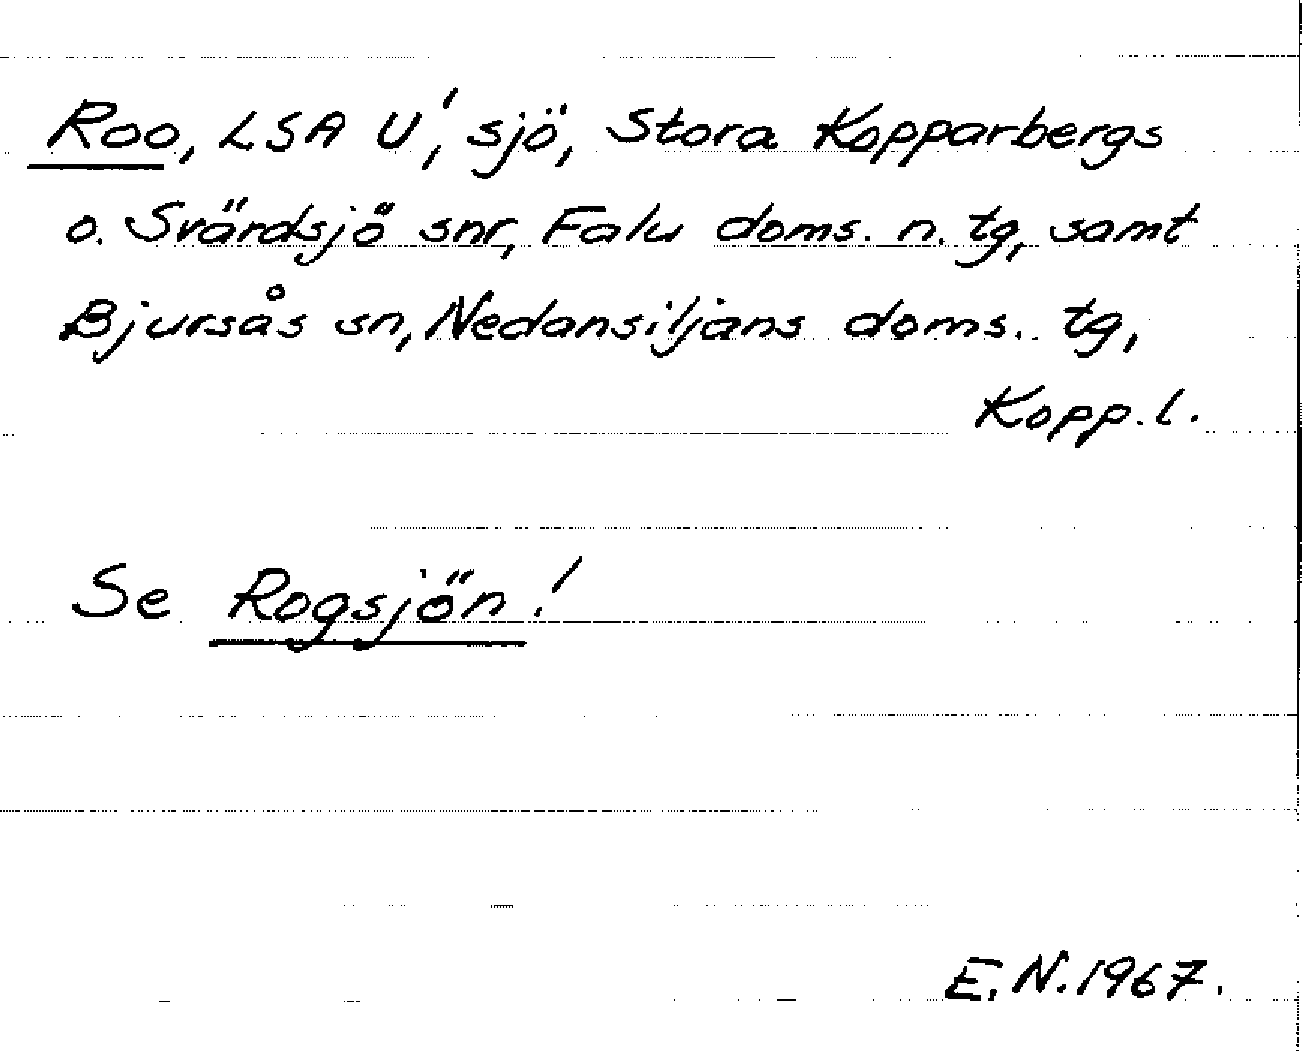 Roo, LSA U', sjö, Stora Kopparbergs
o. Svärdsjö snr, Falu doms. n. tg, samt
Bjursås sn, Nedansiljans doms. tg,
Kopp. l.
Se Rogsjön!
E. N. 1967.